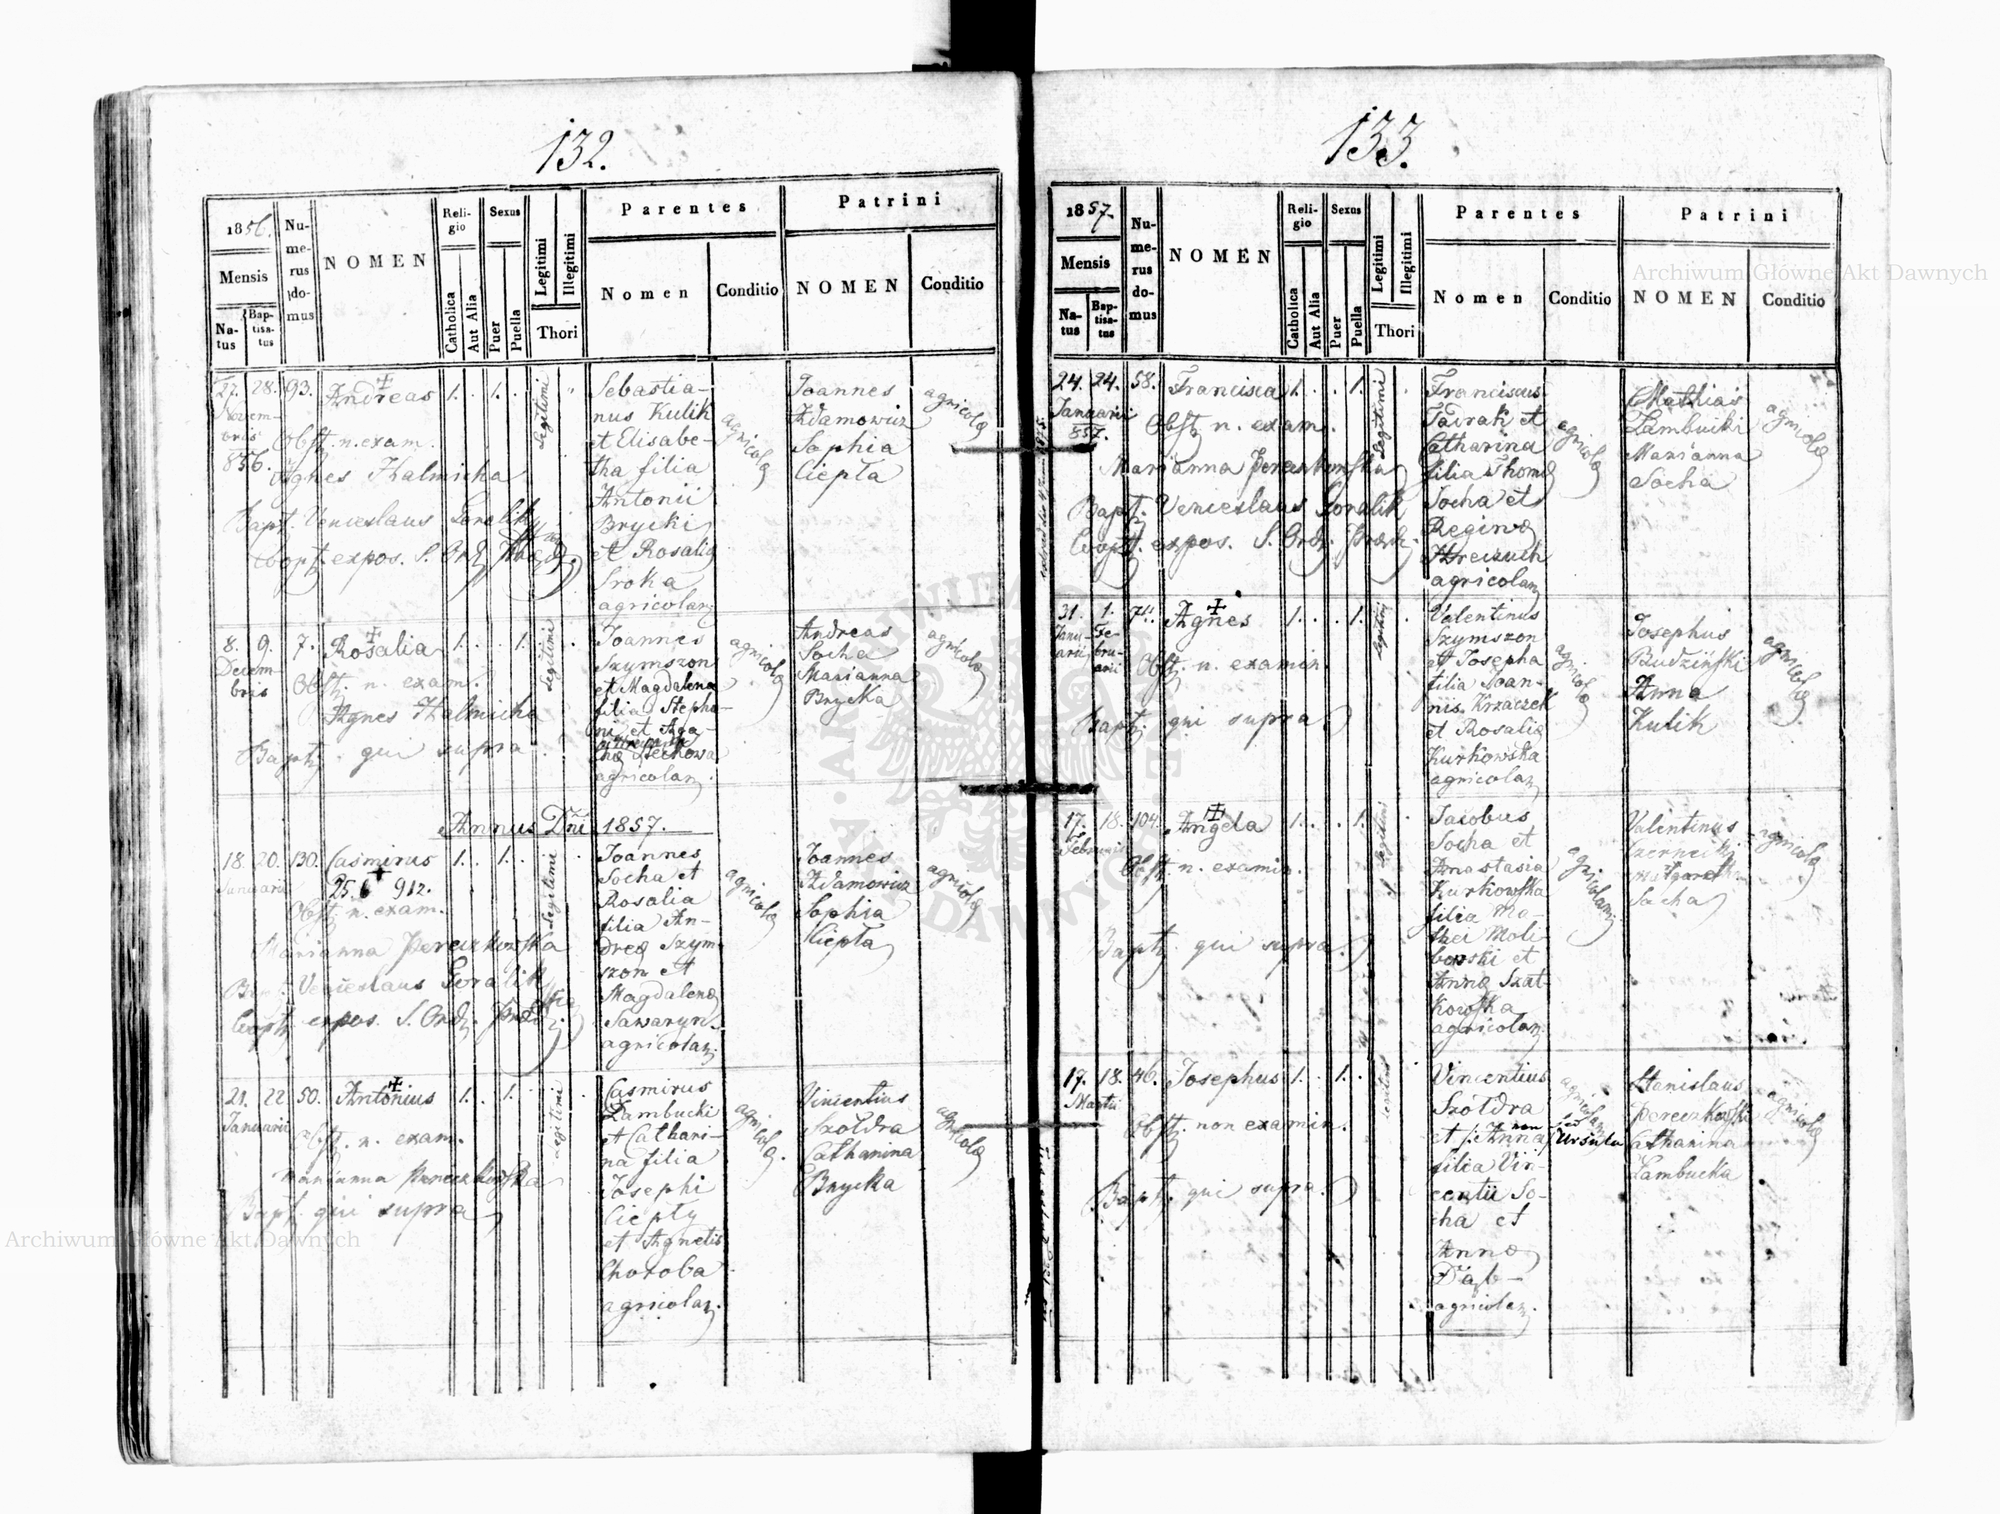 132.
1856.
Mensis
Na-
tus
Bap-
tisa-
tus
Nu-
me-
rus
do-
mus
NOMEN
Reli-
gio
Catholica
Aut Alia
Sexus
Puer
Puella
Legitimi
Illegitimi
Thori
Parentes
Nomen
Conditio
Patrini
NOMEN
Conditio
27. 28. 93. Andreas 1. . 1. .
Novem-
bris
856.
Obst. n. exam.
Agnes Halmicha
Bapt. Venceslaus Goralik
Coopt. expos. S. Ord.
Legitimi
Sebastia-
nus Kulik
et Elisabe-
tha filia
Antonii
Brycki
et Rosalia
Sroka
agricolar.
agricola
Joannes
Adamowicz
Sophia
Ciepta
agricola
8. 9. 7. Rosalia 1. . . 1.
Decem-
bris
Obst. n. exam.
Agnes Halmicha
Bapt. qui supra
Legitimi
Joannes
Szymszon
et Magdalena
filia Stepha-
ni et Aga-
agricolar.
agricola
Andreas
Socha
Marianna
Brycka
agricola
Annus Dni 1857.
18. 20. 130. Casmirus 1. . 1. .
Januarii
25.6 912.
Obst. n. exam.
Marianna Pereczkowska
Venceslaus Goralik
Coopt. expos. S. Ord.
Legitimi
Joannes
Socha et
Rosalia
filia An-
dreæ Szym-
szon et
Magdalenæ
Sawaryn.
agricolar.
agricola
Joannes
Adamowicz
Sophia
Kiepta
agricola
21. 22. 50. Antonius 1. . 1.
Januarii
Obst. n. exam.
Marianna Pereczkowska
Bapt. qui supra
Legitimi
Casmirus
Zambucki
et Cathari-
na filia
Josephi
Ciepty
et Agnetis
Choroba
agricolar.
agricola.
Vincentius
Szoldra
Catharina
Brycka
agricola
133.
1857.
Mensis
Na-
tus
Bap-
tisa-
tus
Nu-
me-
rus
do-
mus
NOMEN
Reli-
gio
Catholica
Aut Alia
Sexus
Puer
Puella
Legitimi
Illegitimi
Thori
Parentes
Nomen
Conditio
Patrini
NOMEN
Conditio
24. 24. 58. Francisca 1. . . 1.
Januarii
857.
Obst. n. exam.
Marianna Pereczkowska
Bapt. Venceslaus Goralik
Coopt. expos. S. Ord.
Legitimi
Franciscus
et
Catharina
filia Thomæ
Socha et
Reginæ
agricolar.
agricola
Mathias
Zambucki
Marianna
Socha
agricola
31. 1. 74. Agnes 1. . . 1.
Janu-
arii
Fe-
bru-
arii
Obst. n. examin.
Bapt. qui supra.
Legitimi
Valentinus
Szymszon
et Josepha
filia Joan-
nis Krzaczek
et Rosaliæ
Kurkowska
agricolar.
agricola
Josephus
Budziński
Anna
Kulik
agricola
17. 18. 104. Angela 1. . . 1.
Februarii
Obst. n. examin.
Bapt. qui supra.
Legitimi
Jacobus
Socha et
Anastasia
Kurkowska
filia Ma-
thei Moli-
bowski et
Annæ Szat-
kowska
agricolar.
agricolar.
Valentinus
Socha
agricola
17. 18. 46. Josephus 1. . 1. .
Martii
Obst. non examin.
Bapt. qui supra.
Vincentius
Szoldra
et Anna non sed Ursula
filia Vin-
centii So-
cha et
Annæ
Dąb-
agricolar.
agricolar.
Stanislaus
Pereczkowski
Catharina
Zambucka
agricola
Archiwum Główne Akt Dawnych
Archiwum Główne Akt Dawnych